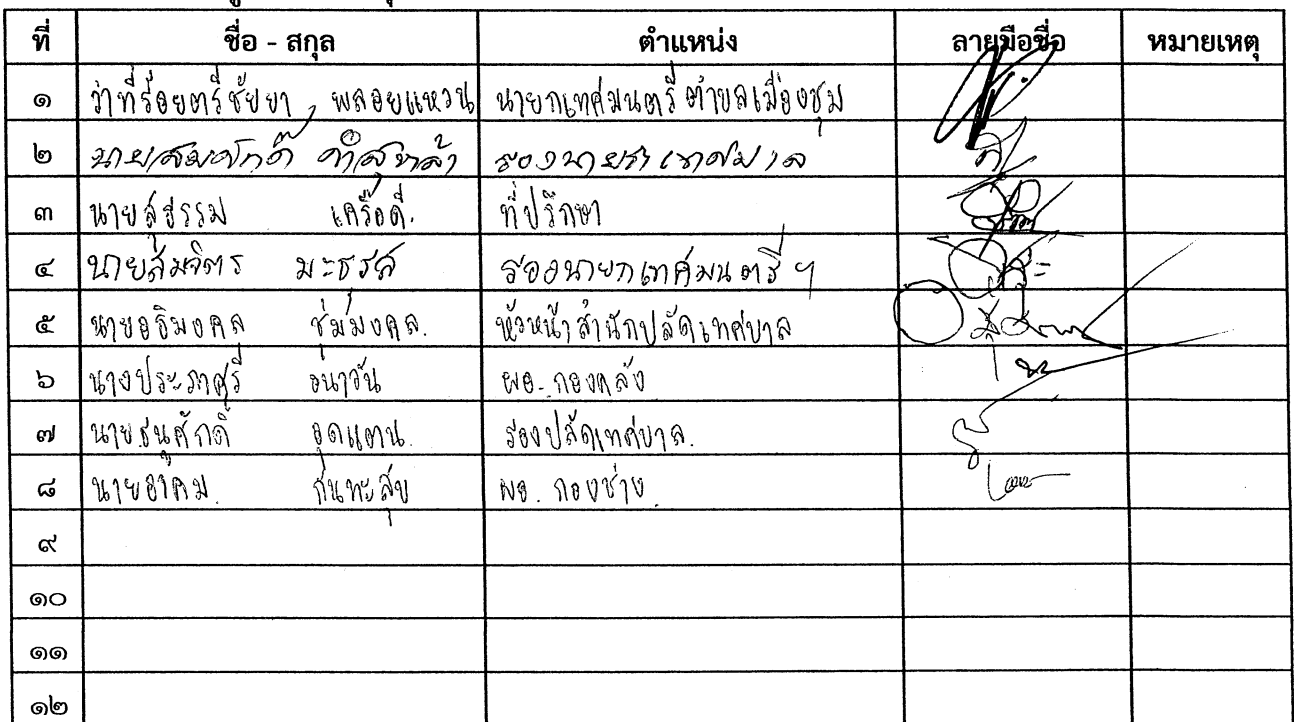 ที่ ชื่อ - สกุล ตำแหน่ง ลายมือชื่อ หมายเหตุ
๑ ว่าที่ร้อยตรีชัยยา พลอยแหวน นายกเทศมนตรีตำบลเมืองชุม
๒ นายสมศักดิ์ รองนายกเทศมนตรี
๓ นายสุธรรม เครือดี. ที่ปรึกษา
๔ นายสมจิตร มะธรส รองนายกเทศมนตรี ฯ
๕ นายอธิมงคล ชุ่มมงคล. หัวหน้าสำนักปลัดเทศบาล
๖ นางประภาศรี ธนาวัน ผอ. กองคลัง
๗ นายธนูศักดิ์ อุดแตน. รองปลัดเทศบาล.
๘ นายอาคม. กันทะสุข ผอ. กองช่าง
๙
๑๐
๑๑
๑๒